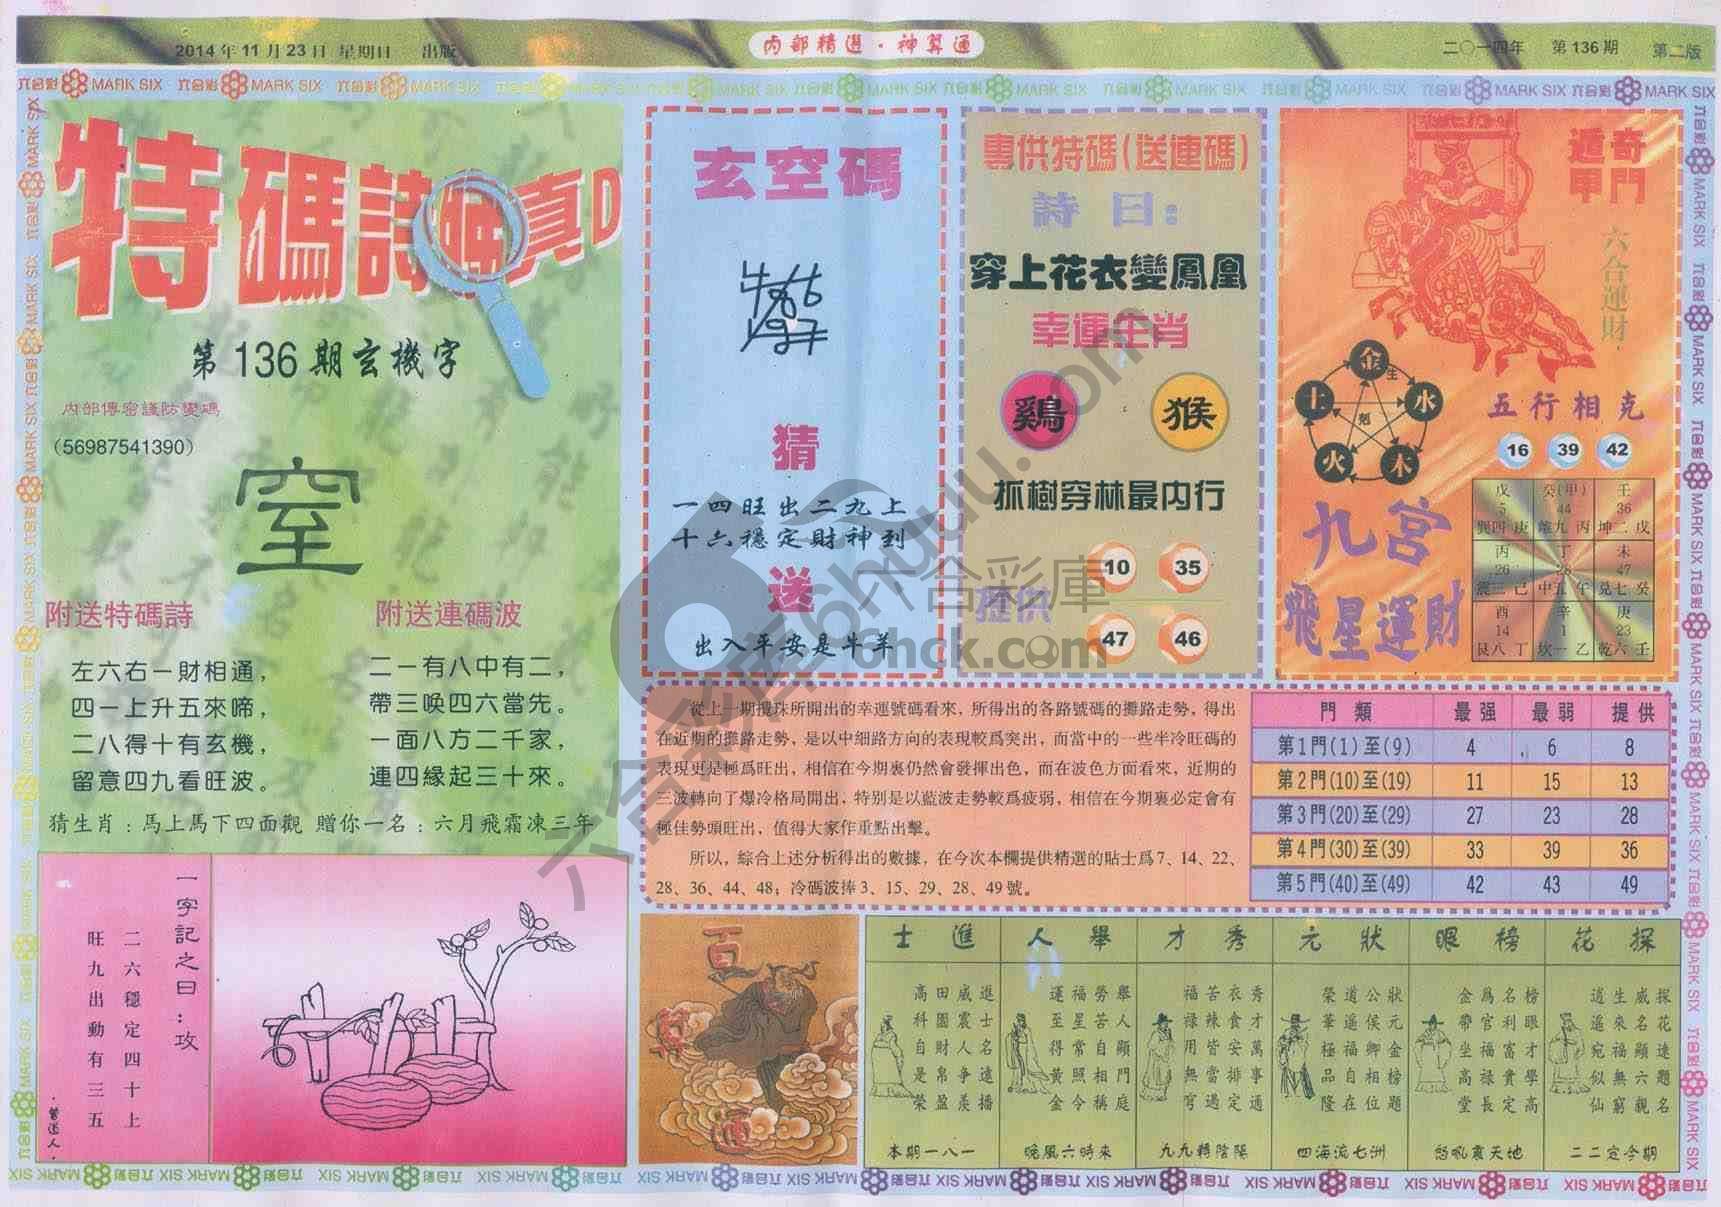 2014年11月23日 星期日 出版
内部精選·神算通
二〇一四年 第136期 第二版
六合彩 MARK SIX
特碼詩
真
第136期玄機字
内部傳密謹防變碼
(56987541390)
室
附送特碼詩
左六右一財相通，
四一上升五來啼，
二八得十有玄機，
留意四九看旺波。
附送連碼波
二一有八中有二，
帶三喚四六當先。
一面八方二千家，
連四緣起三十來。
猜生肖：馬上馬下四面觀 贈你一名：六月飛霜凍三年
一字記之曰：攻
二六穩定四十上
旺九出動有三五
·曾道人·
玄空碼
猜
一四旺出二九上
十六穩定財神到
送
出入平安是牛羊
專供特碼(送連碼)
詩曰：
穿上花衣變鳳凰
幸運生肖
鷄 猴
抓樹穿林最内行
提供
10 35
47 46
奇門遁甲
六合運財
金 生 水 木 火 土 剋
五行相克
16 39 42
九宮
飛星運財
戊 癸(甲) 壬
5 44 36
巽四 庚 離九 丙 坤二 戊
丙 丁 未
26 28 47
震三 己 中五 午 兌七 癸
酉 辛 庚
14 1 23
艮八 丁 坎一 乙 乾六 壬
從上一期攪珠所開出的幸運號碼看來，所得出的各路號碼的攤路走勢，得出
在近期的攤路走勢，是以中細路方向的表現較爲突出，而當中的一些半冷旺碼的
表現更是極爲旺出，相信在今期裏仍然會發揮出色，而在波色方面看來，近期的
三波轉向了爆冷格局開出，特别是以藍波走勢較爲疲弱，相信在今期裏必定會有
極佳勢頭旺出，值得大家作重點出擊。
所以，綜合上述分析得出的數據，在今次本欄提供精選的貼士爲7、14、22、
28、36、44、48；冷碼波捧3、15、29、28、49號。
門類 最强 最弱 提供
第1門(1)至(9) 4 6 8
第2門(10)至(19) 11 15 13
第3門(20)至(29) 27 23 28
第4門(30)至(39) 33 39 36
第5門(40)至(49) 42 43 49
百
探花
探花遠題名
威名顯六親
生來福無窮
逍遥宛似仙
二二定今期
榜眼
榜眼才學高
名利富貴定
爲官福禄長
金帶坐高堂
怒吼震天地
狀元
狀元金榜題
公侯卿相位
道遥福自在
榮華極品隆
四海流七洲
秀才
秀才萬事通
衣食安排定
苦辣皆當遇
福禄用無窮
九九轉陰陽
舉人
舉人顯門庭
勞苦自相稱
福星常照令
運至得黄金
晚風六時來
進士
進士名遠播
威震人争羨
田園財帛盈
高科自是榮
本期一八一
六合彩庫
6hck.com